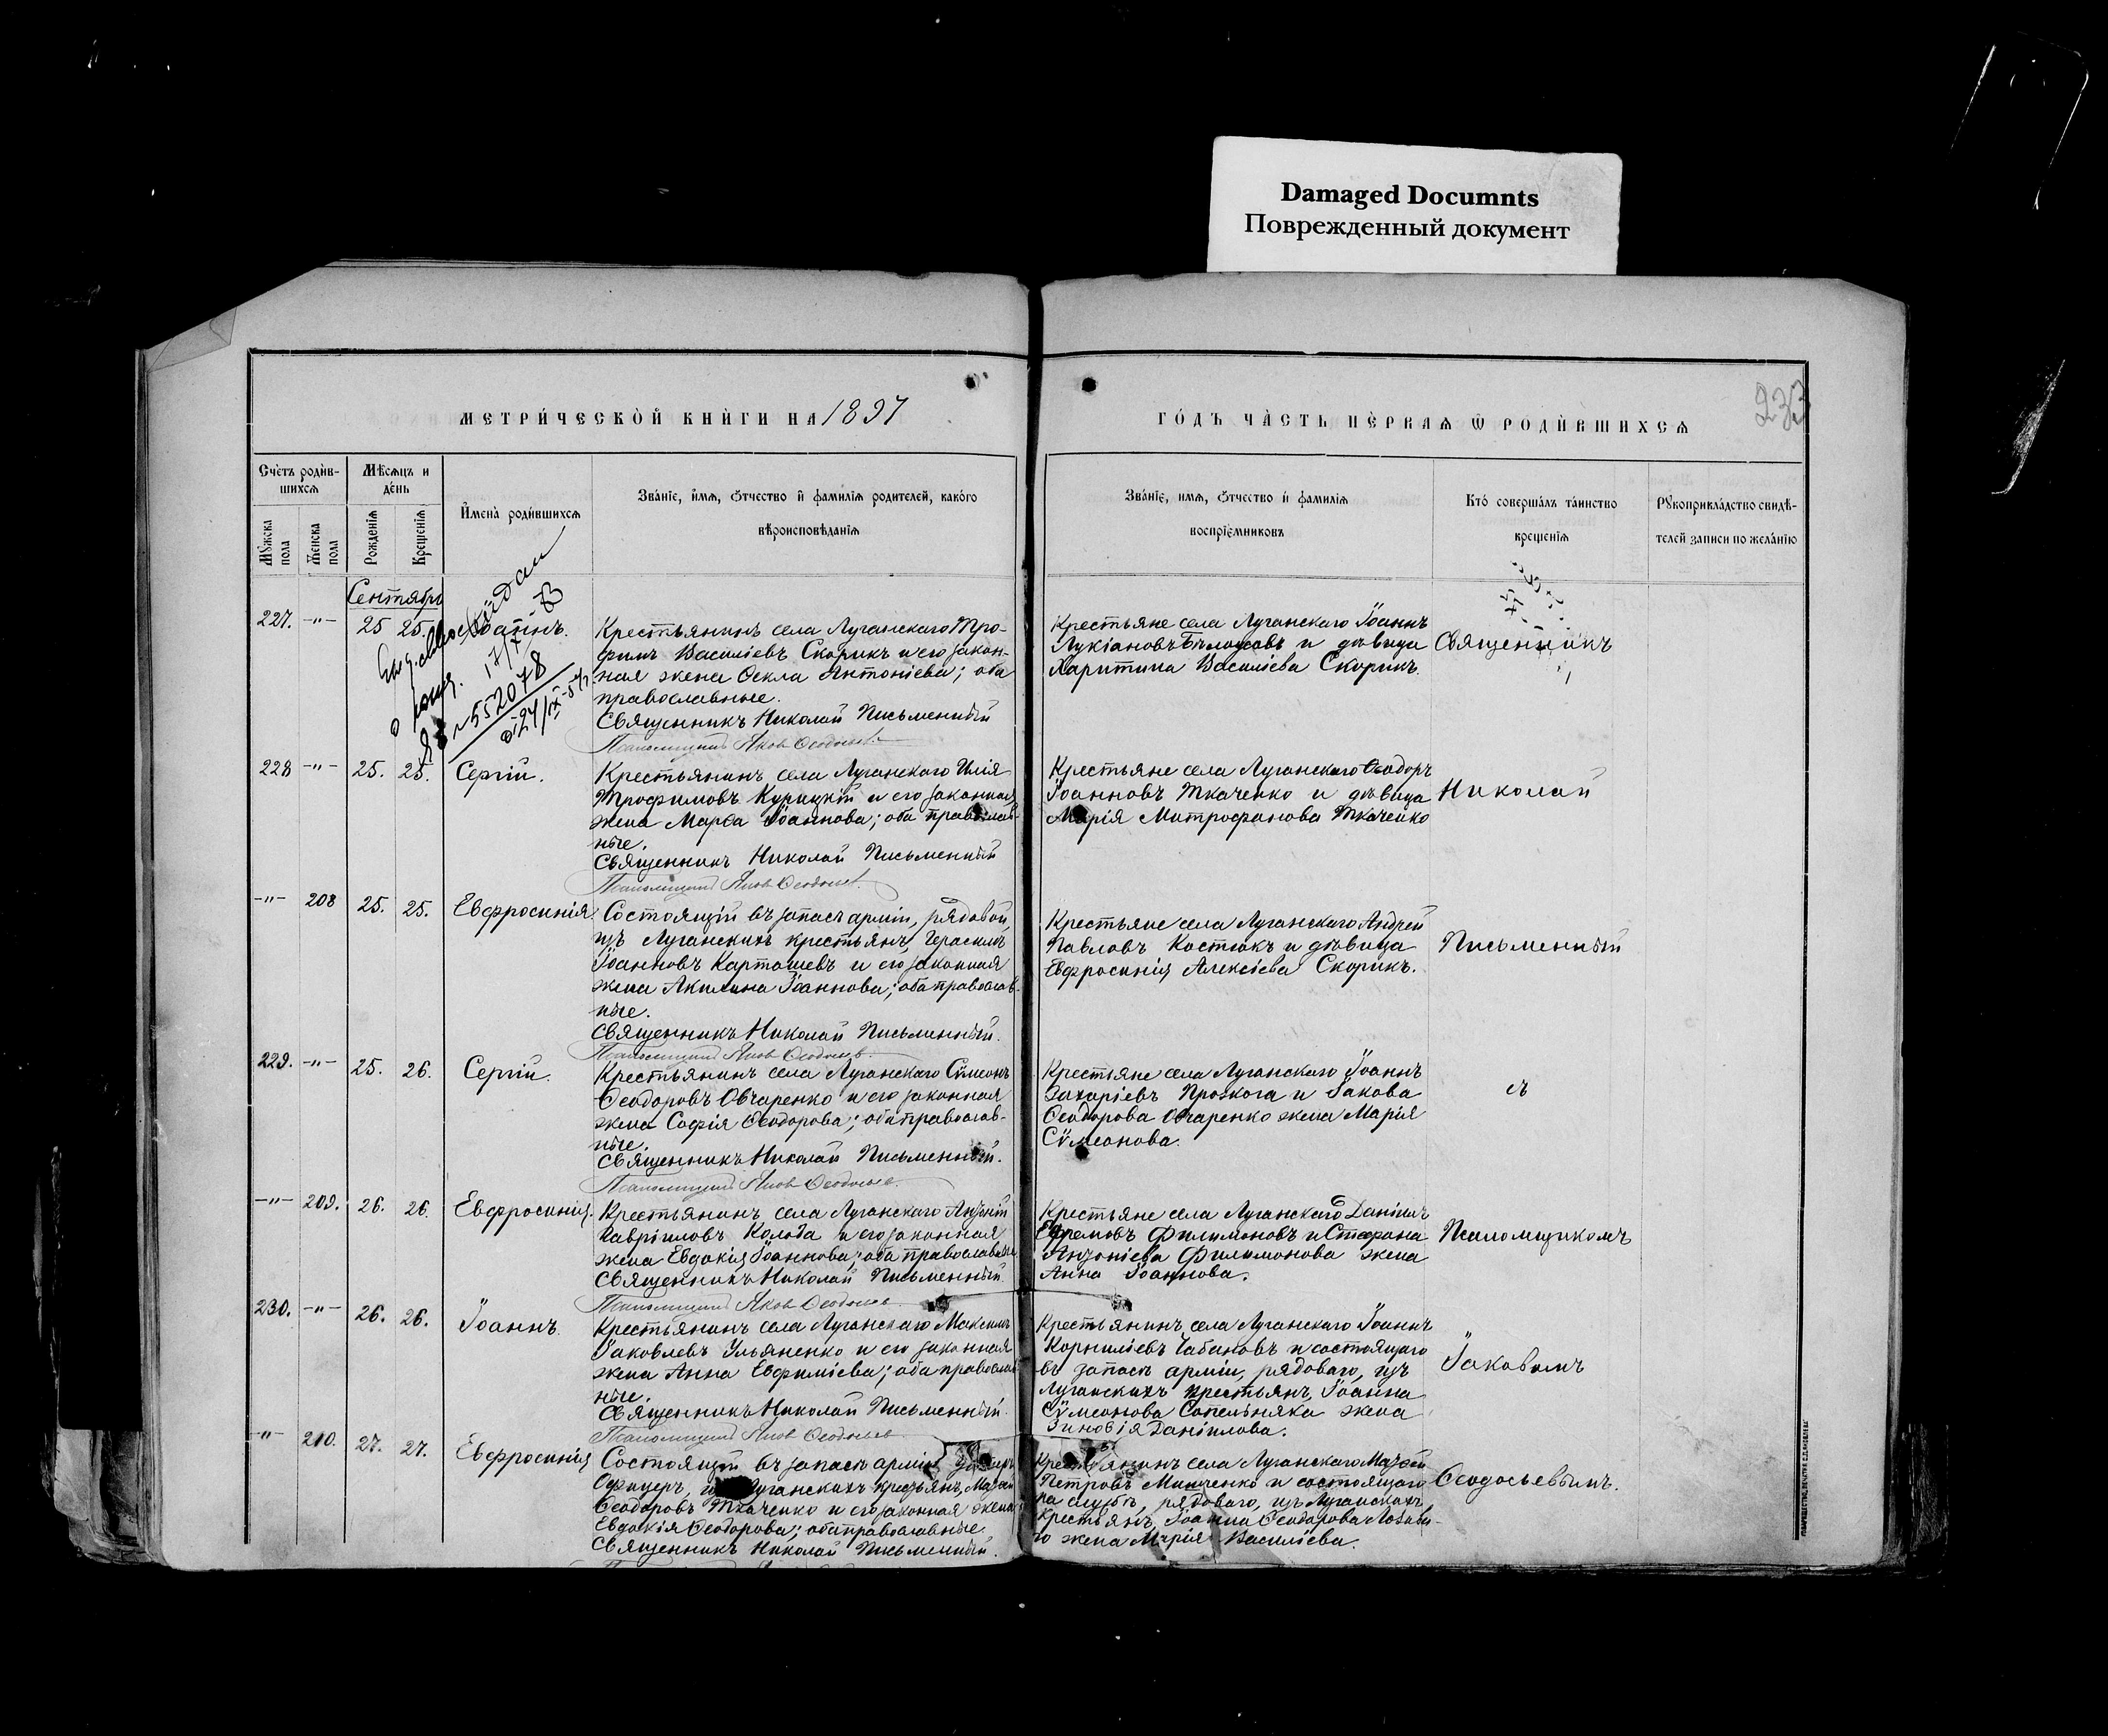 Damaged Documnts
Поврежденный документ
233
МЕТРИ́ЧЕСКОЙ КНИ́ГИ НА 1897
ГО́ДЪ ЧА́СТЬ ПЕ́РВАѦ Ѿ РОДИ́ВШИХСѦ
Сче́тъ роди́в-
шихсѧ
Мѣ́сѧцъ и
де́нь
И҆мена̀ роди́вшихсѧ
Зва́нїе, и҆́мѧ, ѻ҆́тчество и҆ фами́лїѧ роди́телей, како́гѡ
вѣроисповѣ́данїѧ
Зва́нїе, и҆́мѧ, ѻ҆́тчество и҆ фами́лїѧ
воспрїе́мниковъ
Кто̀ соверша́лъ та́инство
креще́нїѧ
Рꙋкоприкла́дство свидѣ́-
телей за́писи по жела́нїю
Мꙋ́жска
пола
Же́нска
пола
Рожде́нїѧ
Креще́нїѧ
Сентябрь
227.
-"-
25
25.
Іоаннъ.
552078
Крестьянинъ села Луганскаго Тро-
фимъ Василіевъ Скорикъ и его закон-
ная жена Ѳекла Антоніева; оба
православные.
Священникъ Николай Письменный
Псаломщикъ Яковъ Ѳеодосьев
Крестьяне села Луганскаго Іоаннъ
Лукіановъ Бѣлоусовъ и дѣвица
Харитина Василіева Скорикъ.
Священникъ
228
-"-
25.
25.
Сергій.
Крестьянинъ села Луганскаго Илія
Трофимовъ Курицкій и его законная
жена Марѳа Іоаннова; оба православ-
ные.
Священникъ Николай Письменный
Псаломщикъ Яковъ Ѳеодосьев
Крестьяне села Луганскаго Ѳеодоръ
Іоанновъ Ткаченко и дѣвица
Марія Митрофанова Ткаченко
Николай
-"-
208
25.
25.
Евфросинія.
Состоящій въ запасѣ арміи, рядовой,
изъ Луганскихъ крестьянъ, Герасимъ
Іоанновъ Карташевъ и его законная
жена Акилина Іоаннова; оба православ-
ные.
Священникъ Николай Письменный.
Псаломщикъ Яковъ Ѳеодосьев
Крестьяне села Луганскаго Андрей
Павловъ Костюкъ и дѣвица
Евфросинія Алексіева Скорикъ.
Письменный
229.
-"-
25.
26.
Сергій.
Крестьянинъ села Луганскаго Сѵмеонъ
Ѳеодоровъ Овчаренко и его законная
жена Софія Ѳеодорова; оба православ-
ные.
Священникъ Николай Письменный.
Псаломщикъ Яковъ Ѳеодосьев
Крестьяне села Луганскаго Іоаннъ
Захаріевъ и Іакова
Ѳеодорова Овчаренко жена Марія
Сѵмеонова.
съ
-"-
209.
26.
26.
Евфросинія.
Крестьянинъ села Луганскаго Антоній
Гавріиловъ Колода и его законная
жена Евдокія Іоаннова; оба православные
Священникъ Николай Письменный
Псаломщикъ Яковъ Ѳеодосьев
Крестьяне села Луганскаго Даніилъ
Ефремовъ Филимоновъ и Стефана
Антоніева Филимонова жена
Анна Іоаннова.
Псаломщикомъ
230.
-"-
26.
26.
Іоаннъ.
Крестьянинъ села Луганскаго Максимъ
Іаковлевъ Ульяненко и его законная
жена Анна Евфиміева; оба православ-
ные.
Священникъ Николай Письменный.
Псаломщикъ Яковъ Ѳеодосьев
Крестьянинъ села Луганскаго Іоаннъ
Корниліевъ Чабановъ и состоящаго
въ запасѣ арміи, рядоваго, изъ
Луганскихъ крестьянъ, Іоанна
Сѵмеонова Сопельняка жена
Зиновія Даніилова.
Іаковомъ
-"-
210.
27.
27.
Евфросинія
Состоящій въ запасѣ арміи
Офицеръ, Луганскихъ крестьянъ,
Ѳеодоровъ Ткаченко и его законная жена
Евдокія Ѳеодорова; оба православные.
Священникъ Николай Письменный.
Крестьянинъ села Луганскаго Матѳей
Петровъ Минченко и состоящаго
на службѣ, рядоваго, изъ Луганскихъ
крестьянъ, Іоанна Ѳеодорова
жена Марія Василіева.
Ѳеодосьевымъ.